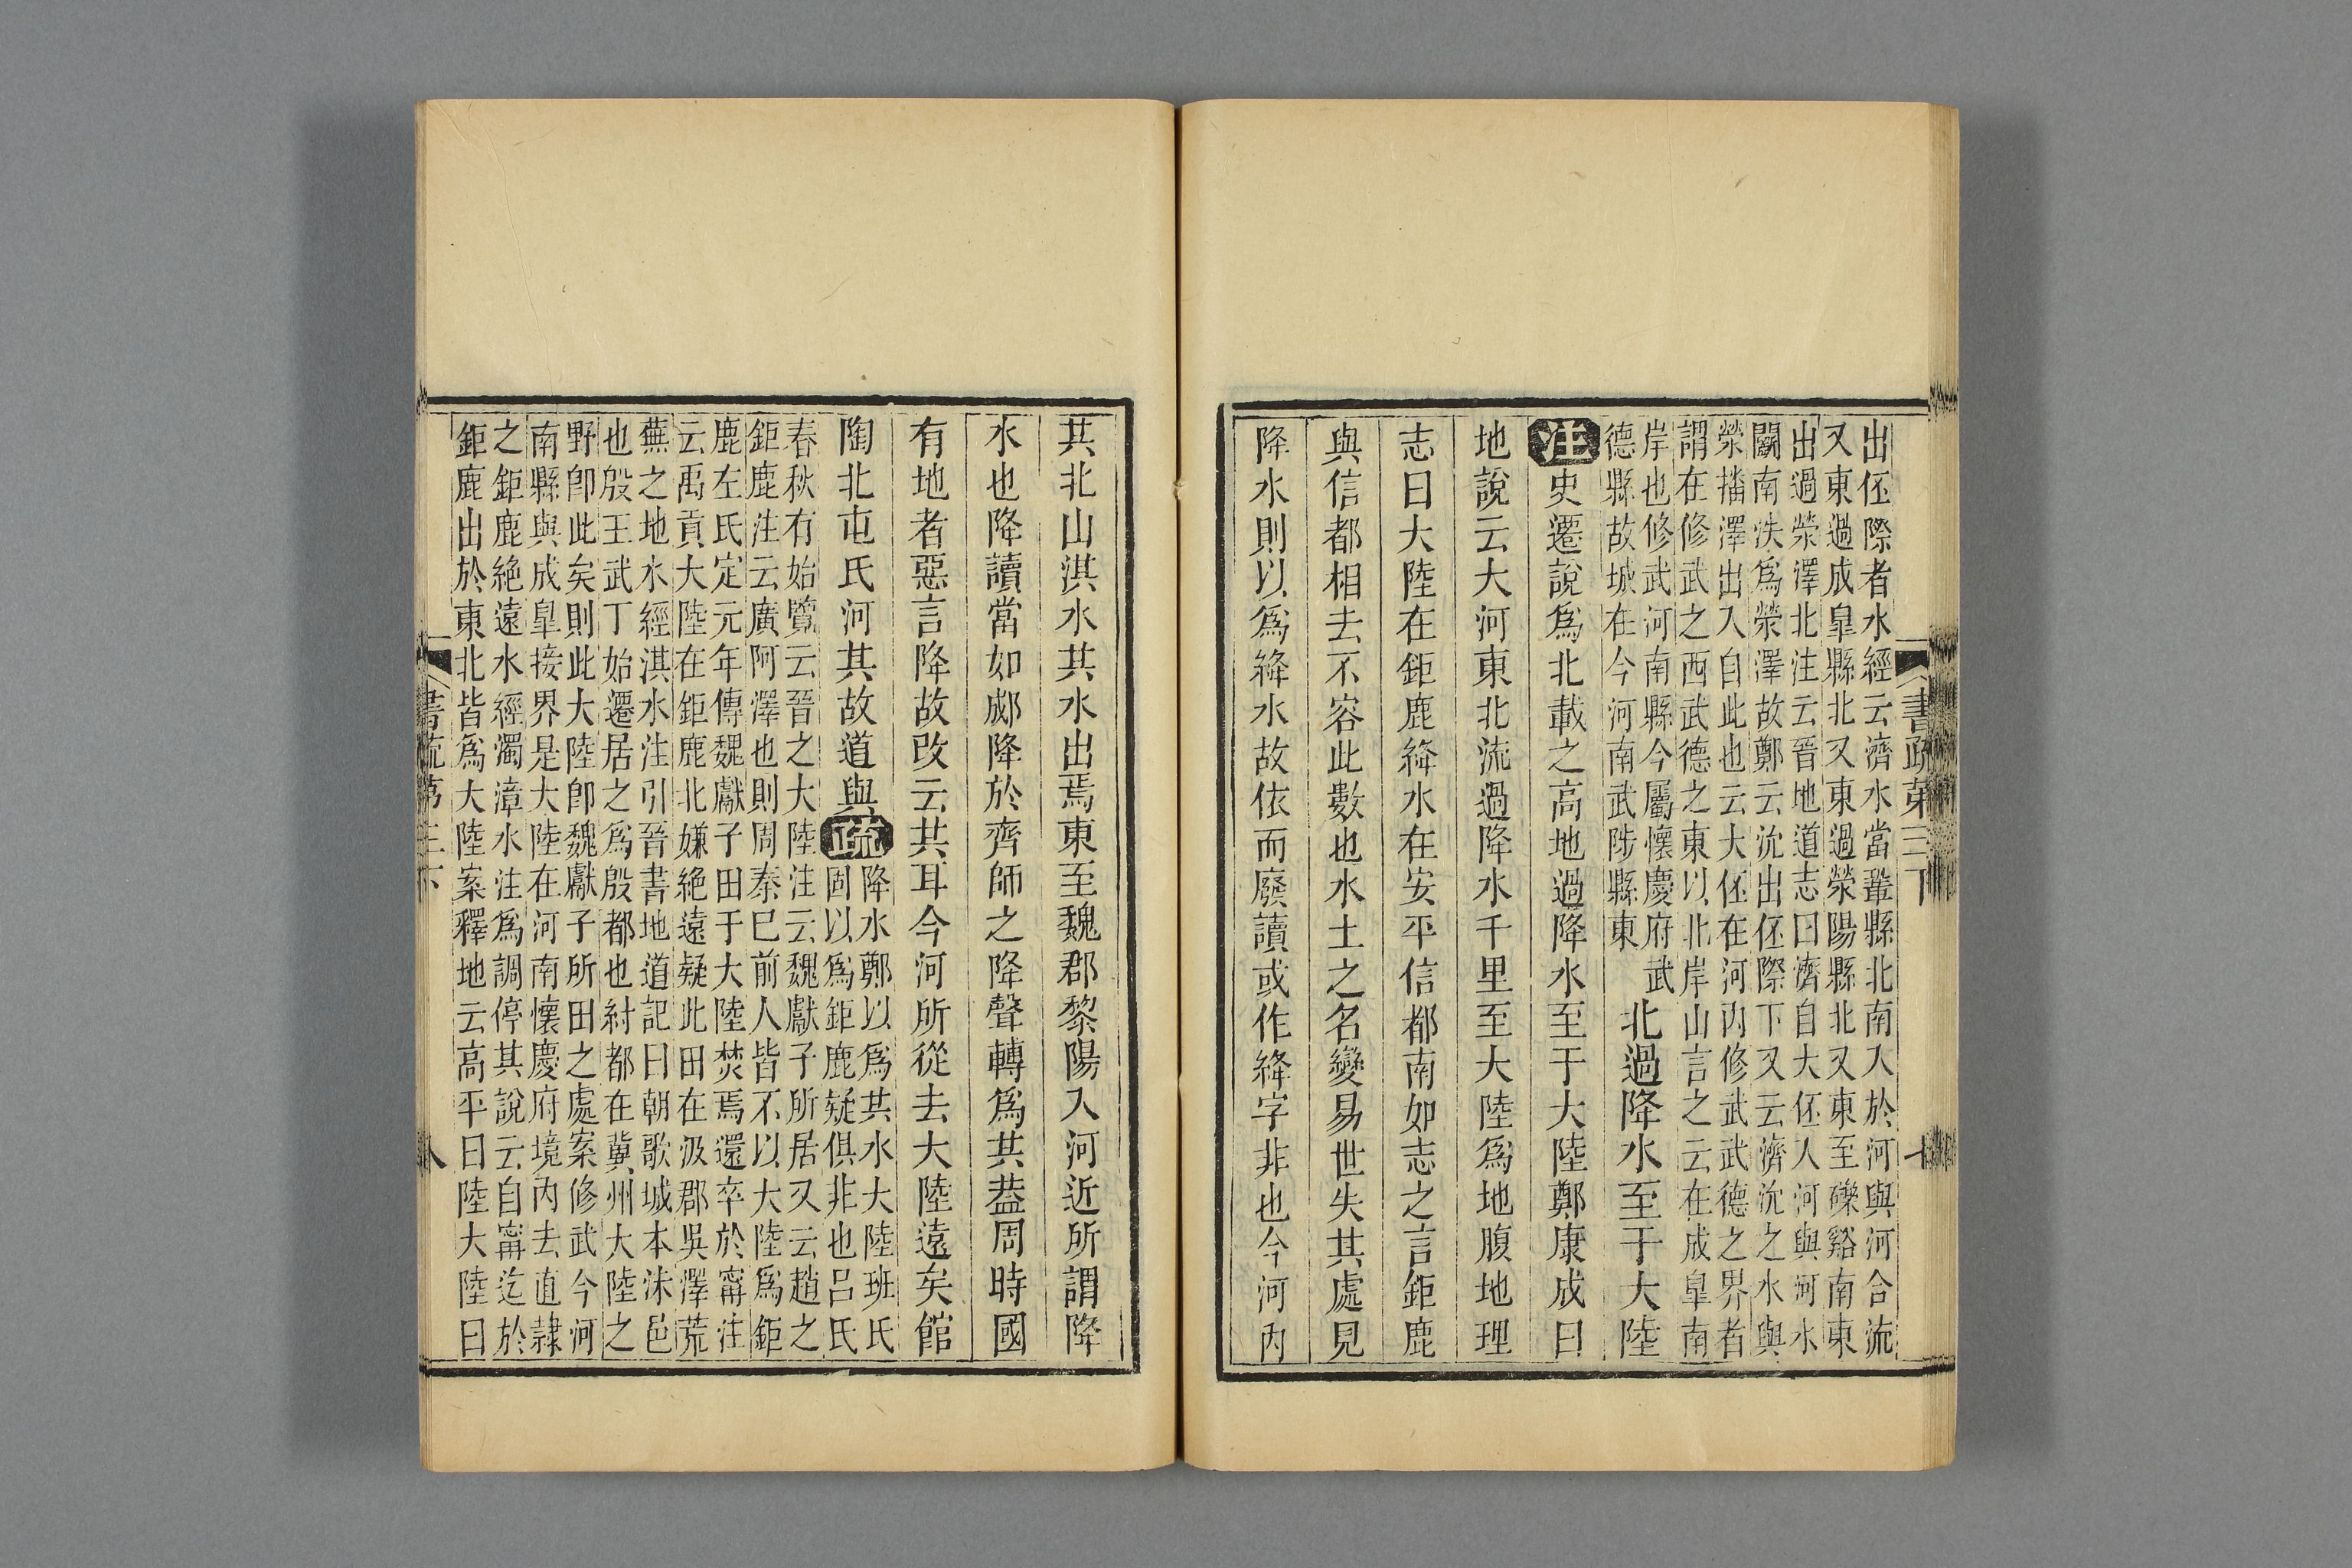 書疏第三下
七
出伾際者水經云濟水當鞏縣北南入於河與河合流
又東過成皐縣北又東過滎陽縣北又東至礫谿南東
出過滎澤北注云晉地道志曰濟自大伾入河與河水
鬭南泆爲滎澤故鄭云沇出伾際下又云濟沇之水與
滎播澤出入自此也云大伾在河內修武武德之界者
謂在修武之西武德之東以北岸山言之云在成皐南
岸也修武河南縣今屬懷慶府武
德縣故城在今河南武陟縣東
北過降水至于大陸
注史遷說爲北載之高地過降水至于大陸鄭康成曰
地說云大河東北流過降水千里至大陸爲地腹地理
志曰大陸在鉅鹿絳水在安平信都南如志之言鉅鹿
與信都相去不容此數也水土之名變易世失其處見
降水則以爲絳水故依而廢讀或作絳字非也今河內
共北山淇水共水出焉東至魏郡黎陽入河近所謂降
水也降讀當如郕降於齊師之降聲轉爲共葢周時國
有地者惡言降故改云共耳今河所從去大陸遠矣館
陶北屯氏河其故道與疏
降水鄭以爲共水大陸班氏
固以爲鉅鹿疑俱非也呂氏
春秋有始覽云晉之大陸注云魏獻子所居又云趙之
鉅鹿注云廣阿澤也則周秦巳前人皆不以大陸爲鉅
鹿左氏定元年傳魏獻子田于大陸焚焉還卒於甯注
云禹貢大陸在鉅鹿北嫌絶遠疑此田在汲郡吳澤荒
蕪之地水經淇水注引晉書地道記曰朝歌城本沬邑
也殷王武丁始遷居之爲殷都也紂都在冀州大陸之
野卽此矣則此大陸卽魏獻子所田之處案修武今河
南縣與成皐接界是大陸在河南懷慶府境內去直隷
之鉅鹿絶遠水經濁漳水注爲調停其說云自甯迄於
鉅鹿出於東北皆爲大陸案釋地云高平曰陸大陸曰
書疏第三下
八